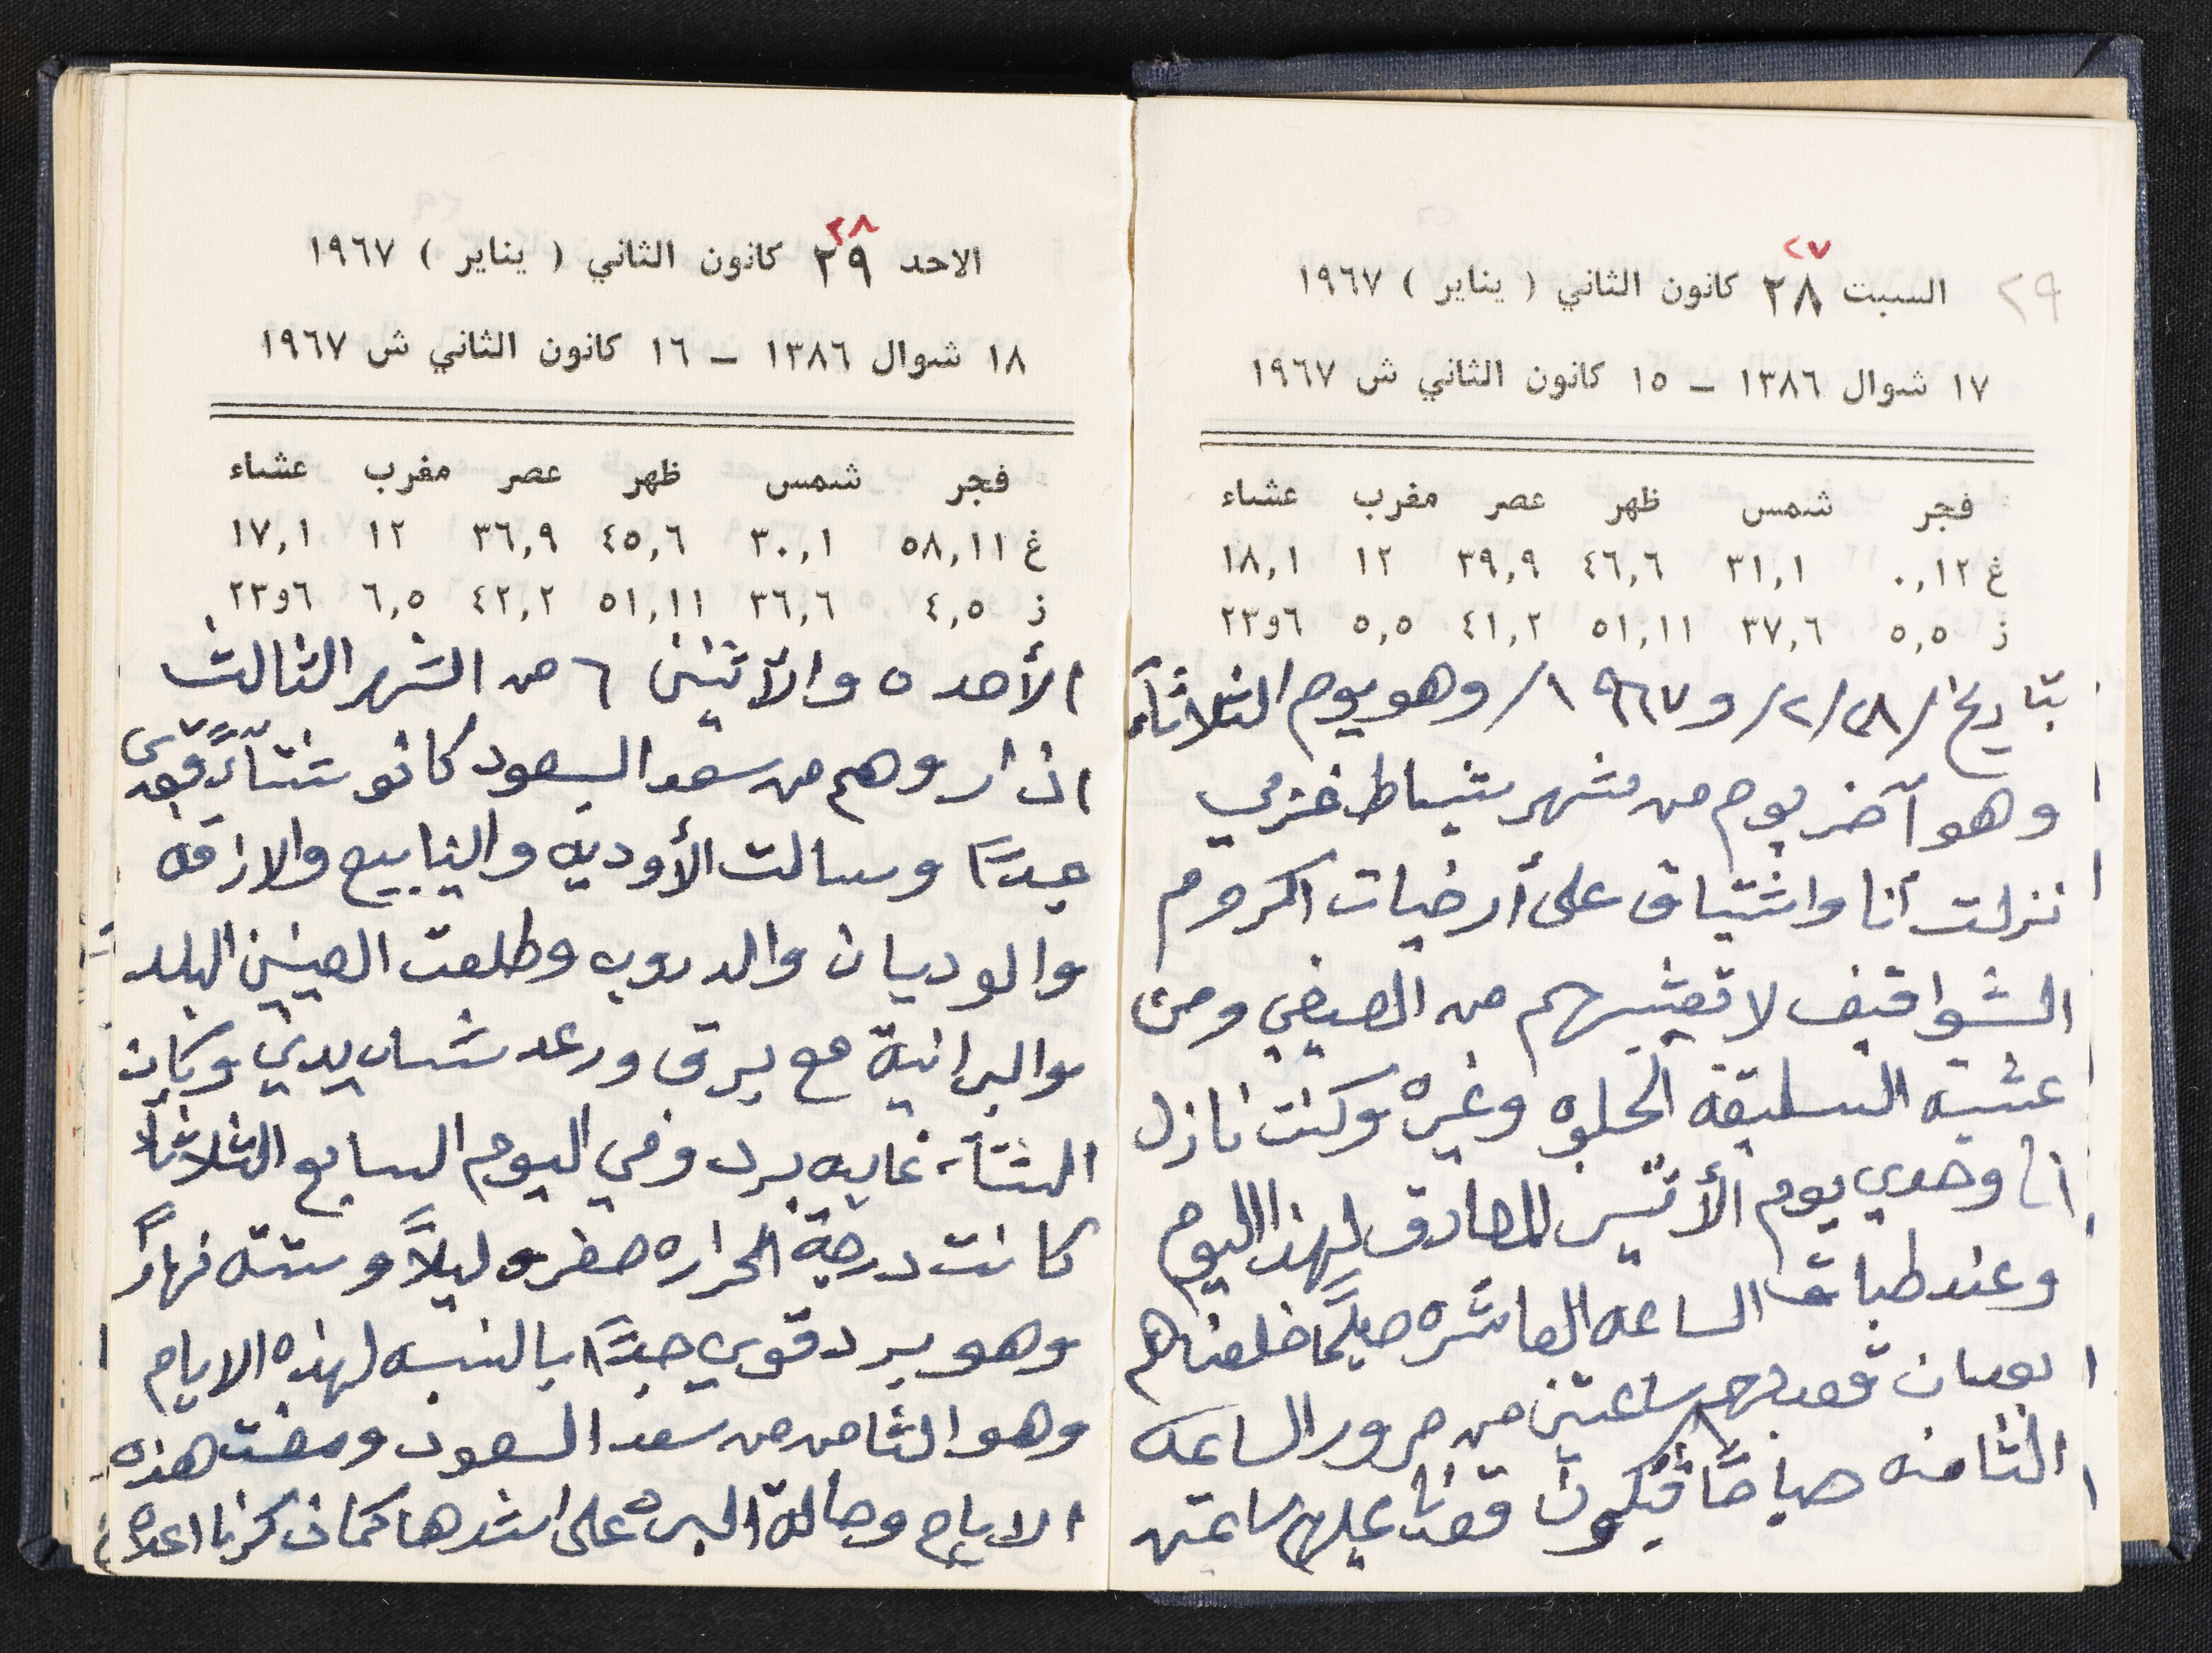 ٢٧
٢٩ السبت ٢٨ كانون الثاني ( يناير ) ١٩٦٧
١٧ شوال ١٣٨٦ – ١٥ كانون الثاني ش ١٩٦٧
فجر شمس ظهر عصر مغرب عشاء
غ ٠,١٢ ٣١,١ ٤٦,٦ ٣٩,٩ ١٢ ١٨,١
ز ٥,٥ ٣٧,٦ ٥١,١١ ٤١,٢ ٥,٥ ٦و٢٣
بتاريخ /٢/٢٨/ و١٩٦٧/ وهو يوم الثلاثآء
وهو آخر يوم من شهر شباط غربي
نزلت أنا واشتياق على أرضيات الكروم
الشواقيف لا تعشبهم من الصيفي ومن
عشبة السليقه الحلوه وغيره وكنت نازل
انا وحدي يوم الأثنين المصادق لهذا اليوم
وعند طباق الساعه العاشره صباحًا خلصناهم
بعد ساعتين من مرور الساعه
الثامنه صباحًا فيكون قعدنا عليهم ساعتين
٢٨
الاحد ٢٩ كانون الثاني ( يناير ) ١٩٦٧
١٨ شوال ١٣٨٦ – ١٦ كانون الثاني ش ١٩٦٧
فجر شمس ظهر عصر مغرب عشاء
غ ٥٨,١١ ٣٠,١ ٤٥,٦ ٣٦,٩ ١٢ ١٧,١
ز ٤,٥ ٣٦,٦ ٥١,١١ ٤٢,٢ ٦,٥ ٦و٢٣
الأحد ٥ والآثنين ٦ من الشهر الثالث
اذار وهم من سعد السعود كانو شتآءً قوى
جدًا وسالت الأوديه والينابيع والازقه
والوديان والدروب وطلعت العينين البلد
والبرانية مع برق ورعد شديدي وكان
الشتآء غايه برد وفي اليوم السابع الثلاثآء
كانت درجة الحراره صفر ليلاً وسته نهارً
وهو برد قوي جدًا بالنسبه لهذه الايام
وهو الثامن من سعد السعود ومضت هذه
الايام وحالة البرد على اشدها كما ذكرنا اعلاه